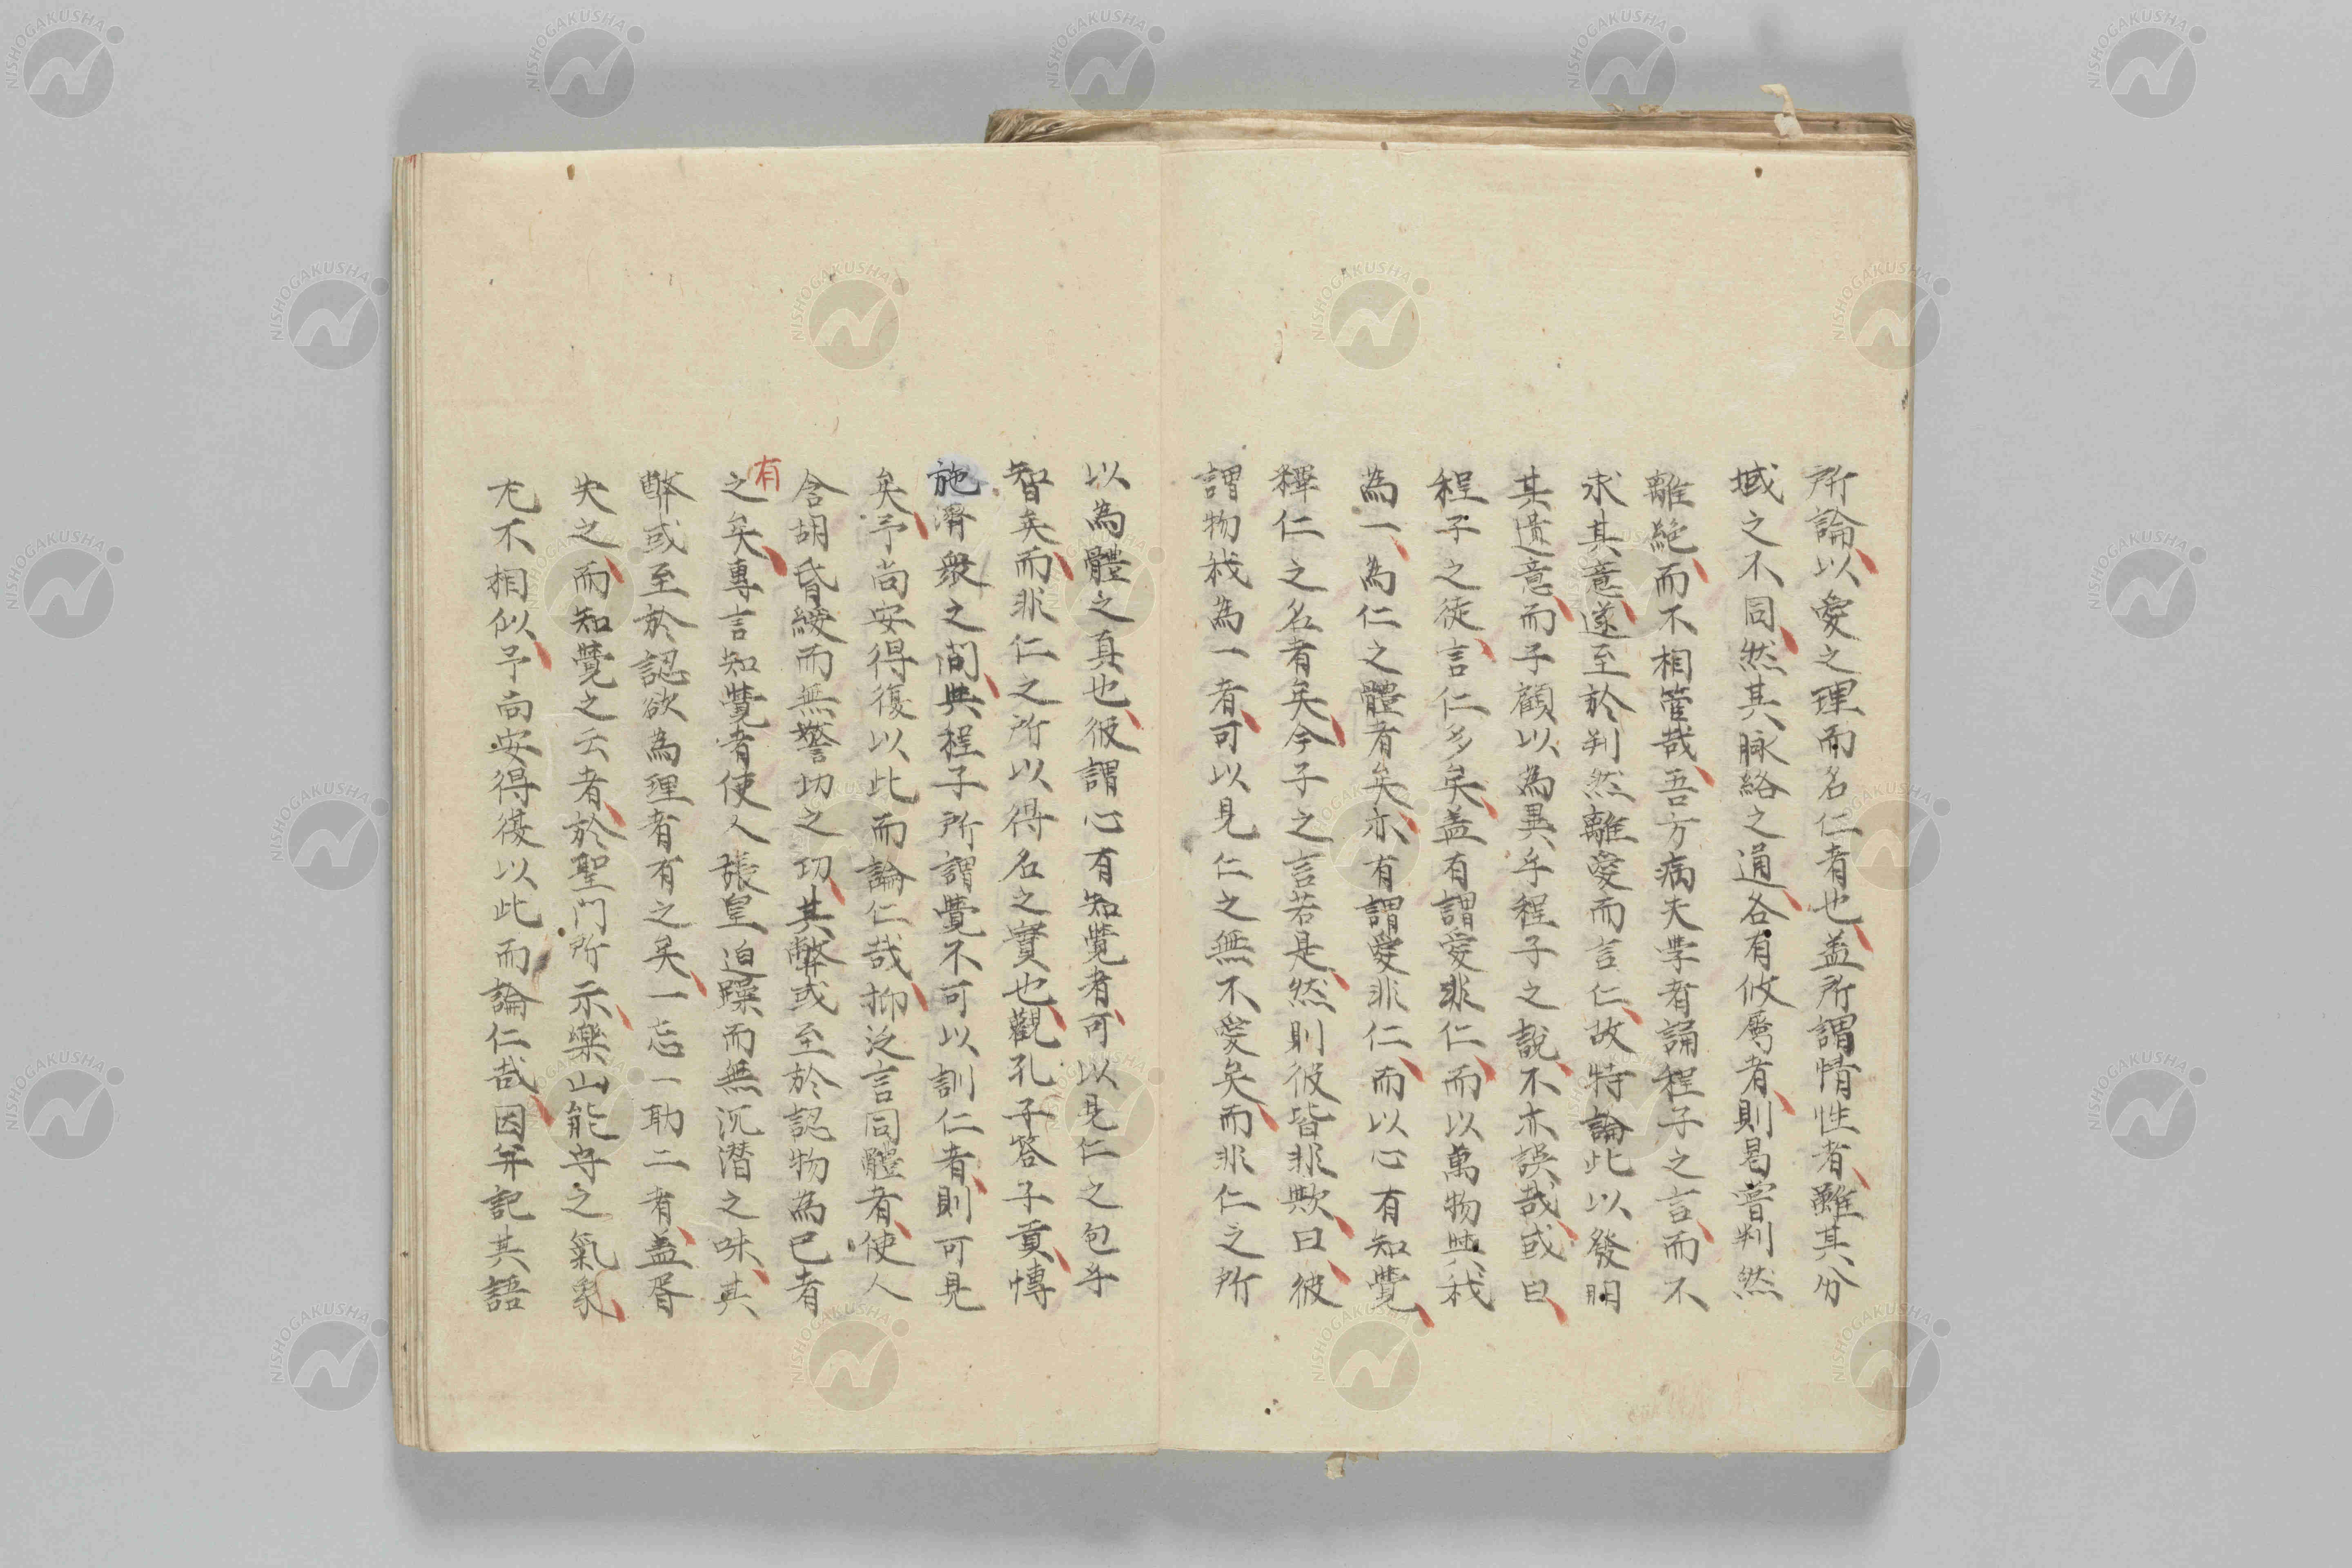 所論以愛之理而名仁者也盖所謂情性者雖其分
域之不同然其脉絡之通各有攸屬者則曷嘗判然
離絶而不相管哉吾方病夫学者誦程子之言而不
求其意遂至於判然離愛而言仁故特論此以發明
其遺意而子顧以為異乎程子之說不亦誤哉或曰
程子之徒言仁多矣盖有謂愛非仁而以萬物與我
為一為仁之體者矣亦有謂愛非仁而以心有知覺
釋仁之名者矣今子之言若是然則彼皆非歟曰彼
謂物我為一者可以見仁之無不愛矣而非仁之所
以為體之真也彼謂心有知覺者可以見仁之包乎
智矣而非仁之所以得名之實也觀孔子答子貢博
施濟衆之問與程子所謂覺不可以訓仁者則可見
矣予尚安得復以此而論仁哉抑泛言同體者使人
含胡昏緩而無警切之功其弊或至於認物為己者
有
之矣專言知覺者使人張皇迫躁而無沉潜之味其
弊或至於認欲為理者有之矣一忘一助二者盖胥
失之而知覺之云者於聖門所示樂山能守之氣象
尤不相似予尚安得復以此而論仁哉因并記其語
NISHOGAKUSHA